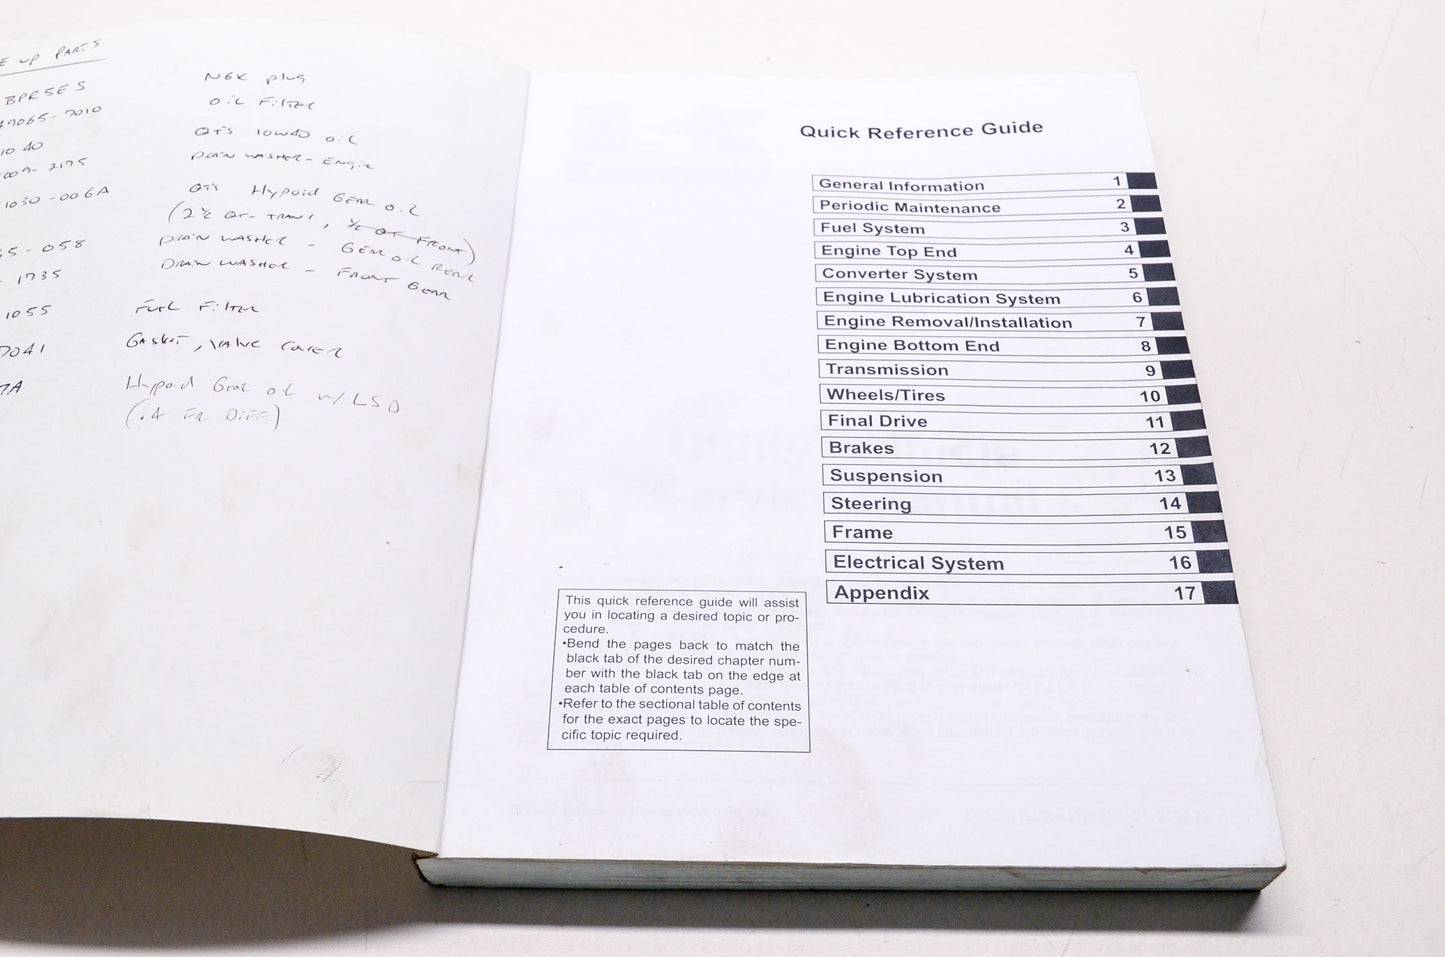 E UP PARTS
BPR5ES NGK plug
49065-7010 oil Filter
1040 QTS 10W40 oil
009-2175 DRAIN WASHER - Engin
1030-006A QTS Hypoid GEAR oil
(2½ QT- TRANS, ½ QT FRONT)
65-058 DRAIN WASHER - GEAR oil REAR
- 1735 DRAIN WASHER - FRONT GEAR
1055 FUEL FilTER
7041 GASKET, VALVE COVER
7A Hypoid GEAR oil w/ LSD
(.4 FR DIFF)
Quick Reference Guide
General Information 1
Periodic Maintenance 2
Fuel System 3
Engine Top End 4
Converter System 5
Engine Lubrication System 6
Engine Removal/Installation 7
Engine Bottom End 8
Transmission 9
Wheels/Tires 10
Final Drive 11
Brakes 12
Suspension 13
Steering 14
Frame 15
Electrical System 16
Appendix 17
This quick reference guide will assist
you in locating a desired topic or pro-
cedure.
•Bend the pages back to match the
black tab of the desired chapter num-
ber with the black tab on the edge at
each table of contents page.
•Refer to the sectional table of contents
for the exact pages to locate the spe-
cific topic required.